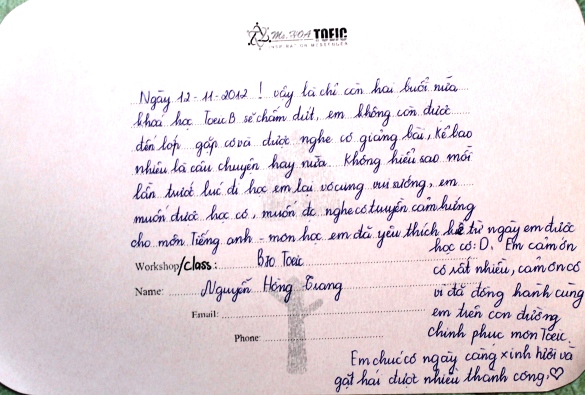 Ms. HOA TOEIC
Ngày 12-11-2012 ! vậy là chỉ còn hai buổi nữa
khoá học Toeic B sẽ chấm dứt, em không còn được
đến lớp gặp cô và được nghe cô giảng bài, kể bao
nhiêu là câu chuyện hay nữa. Không hiểu sao mỗi
lần trước lúc đi học em lại vô cùng vui sướng, em
muốn được học cô, muốn đc nghe cô truyền cảm hứng
cho môn Tiếng anh - môn học em đã yêu thích kể từ ngày em được
học cô :D. Em cảm ơn
cô rất nhiều, cảm ơn cô
vì đã đồng hành cùng
em trên con đường
chinh phục môn Toeic.
Em chúc cô ngày càng xinh tươi và
gặt hái được nhiều thành công. ♡
Workshop/Class: B10 Toeic
Name: Nguyễn Hồng Trang
Email:
Phone: